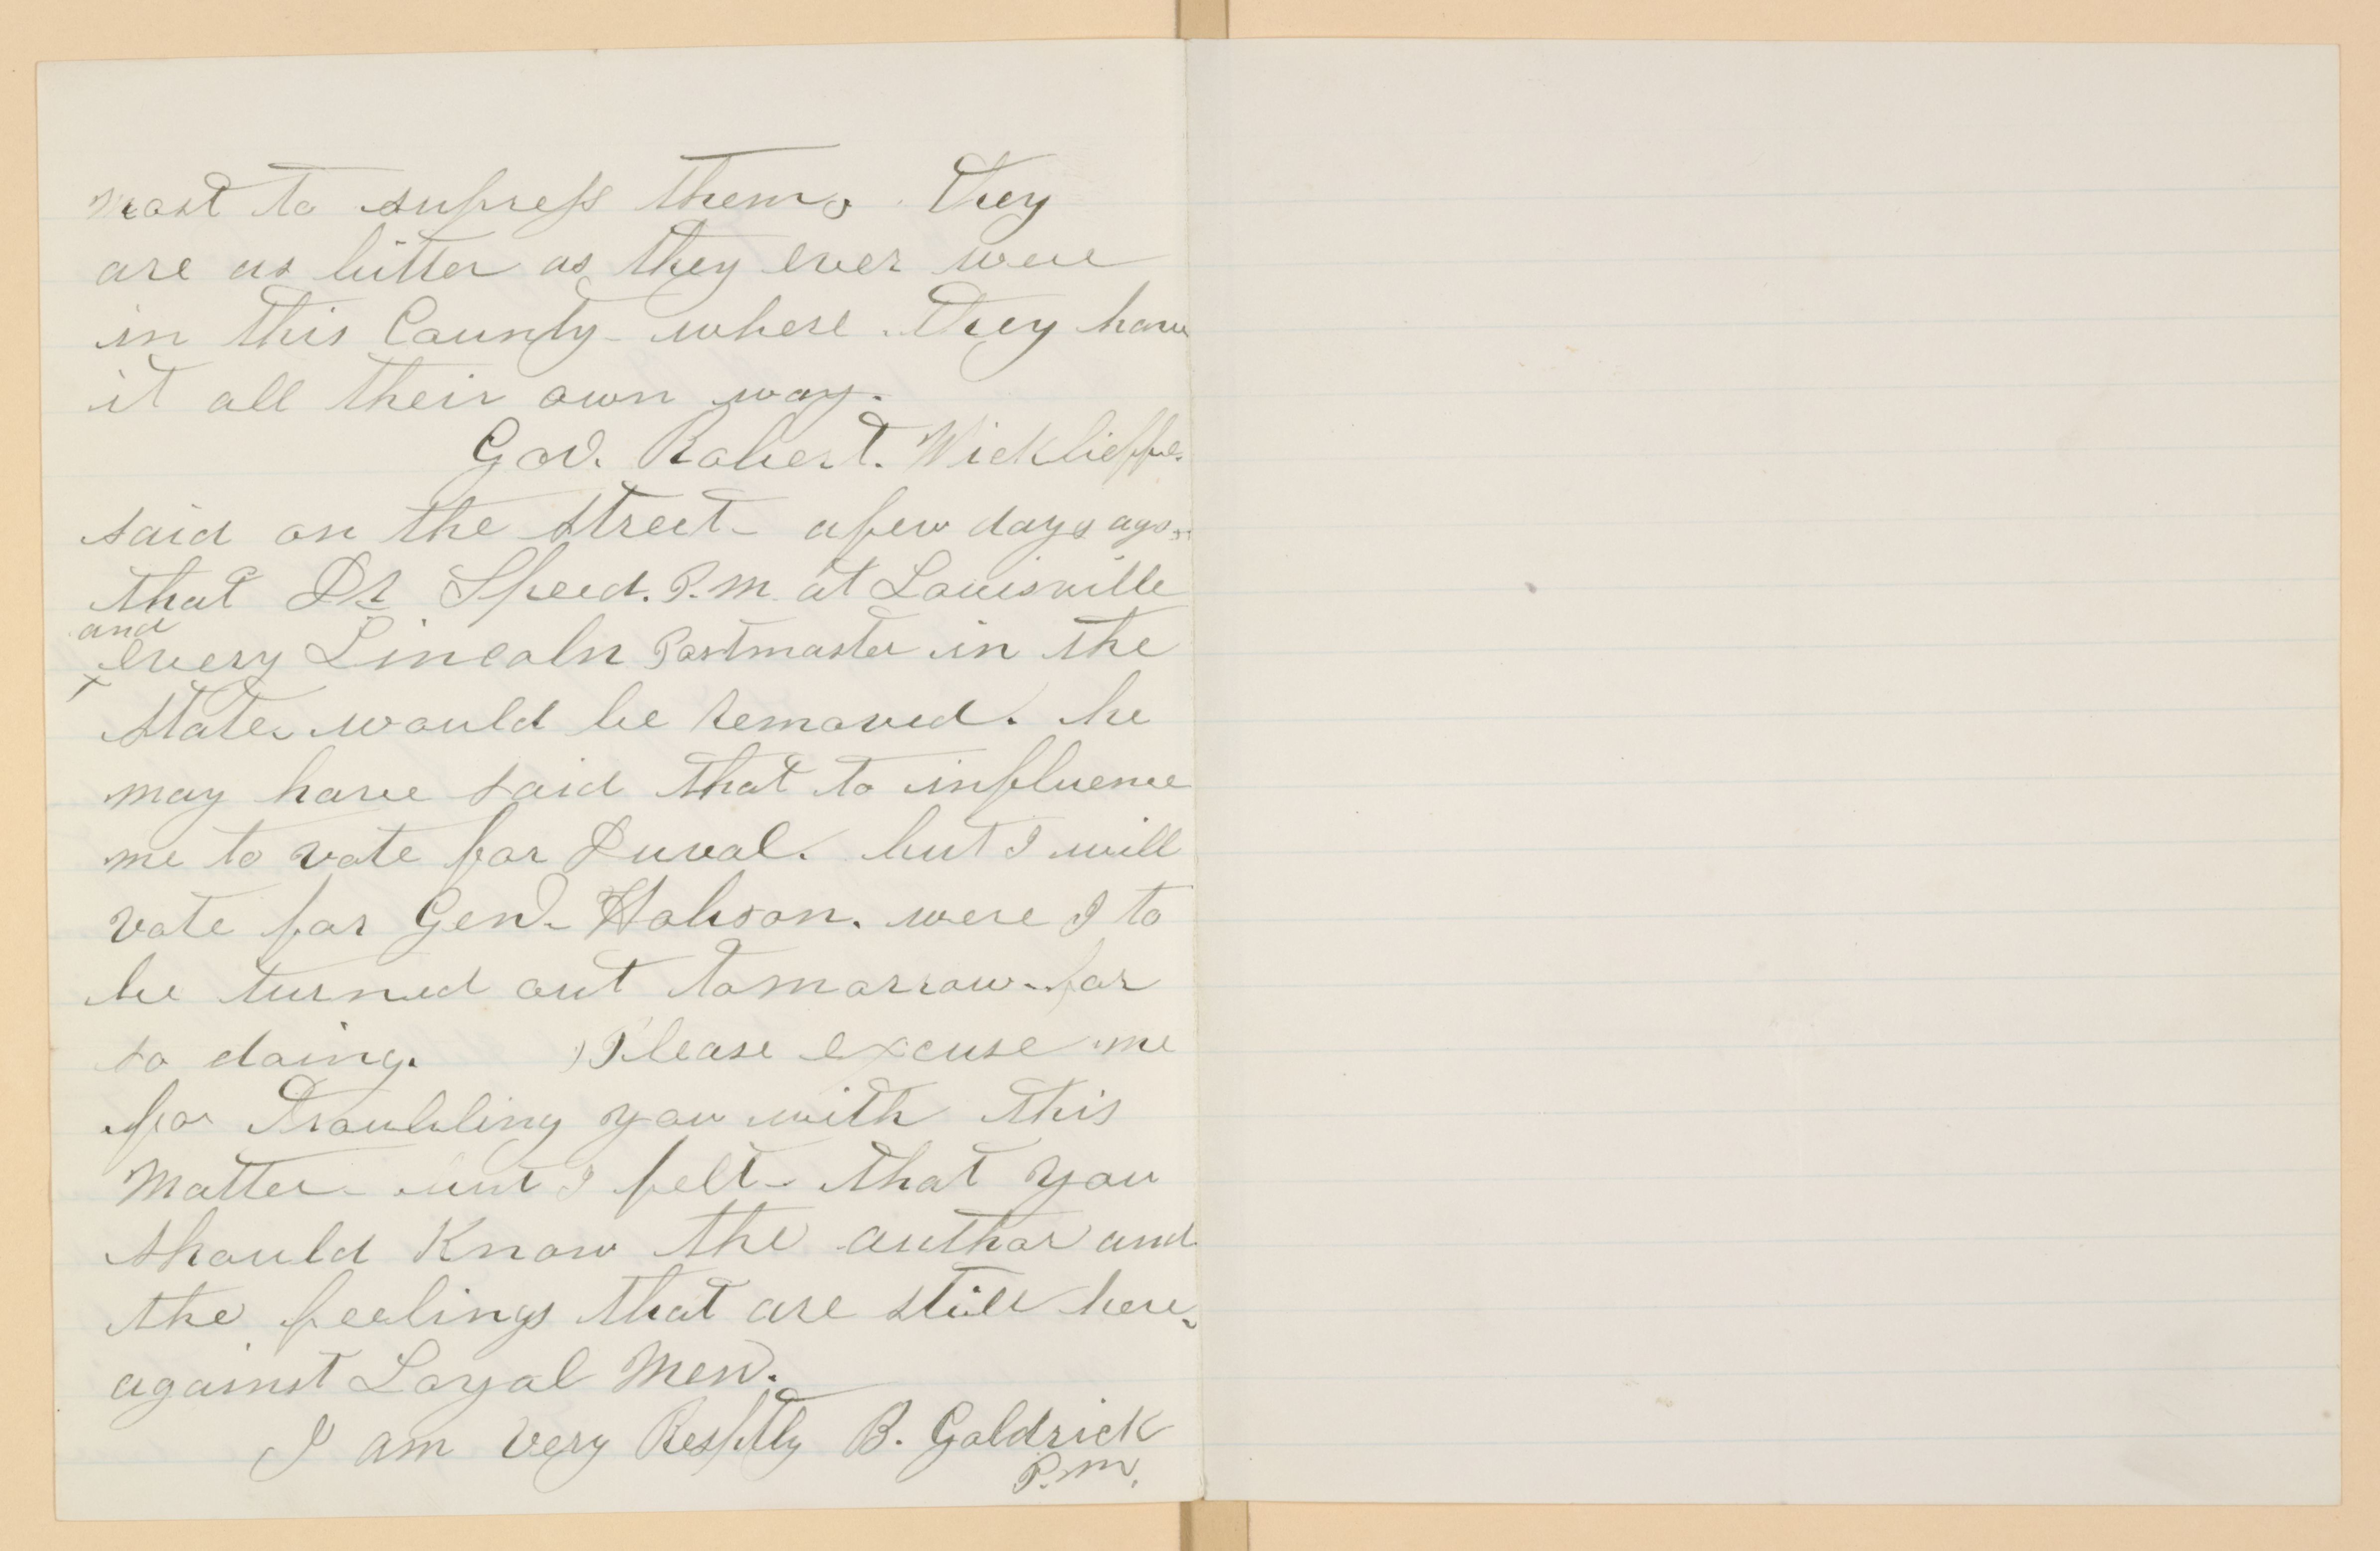 most to supress them. They
are as bitter as they ever were
in this County - where they have
it all their own way.
Gov. Robert. Wickliffe.
said on the street - a few days ago.
that Dr Speed. P.M. at Louisville
and
every Lincoln Postmaster in the
State would be removed. he
may have said that to influence
me to vote for Duval. but I will
vote for Genl Hobson. were I to
be turned out tomorrow for
so doing. Please excuse me
for Troubling you with this
Matter but I felt - that you
should Know the author and
the feelings that are still here
against Loyal Men.
I am Very Resptly B. Goldrick
P.M.